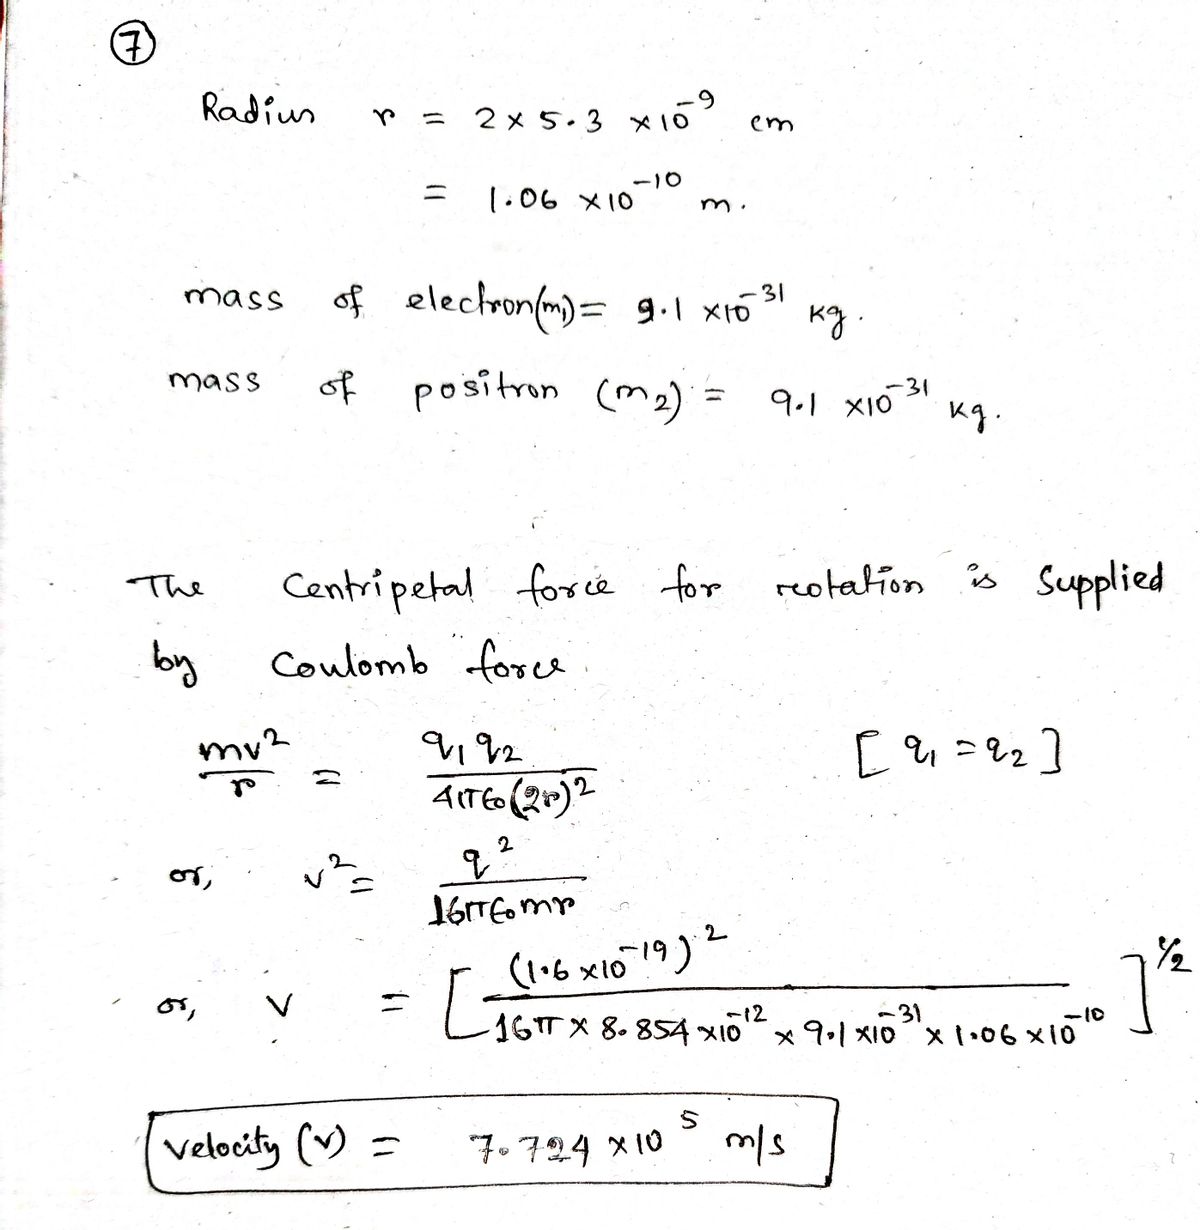 ⑦
Radius r = 2 × 5.3 × 10⁻⁹ cm
= 1.06 × 10⁻¹⁰ m.
mass of electron(m₁) = 9.1 × 10⁻³¹ kg.
mass of positron (m₂) = 9.1 × 10⁻³¹ kg.
The Centripetal force for rotation is Supplied
by Coulomb force.
mv²/r = q₁q₂/4πϵ₀(2r)² [q₁ = q₂]
or, v² = q²/16πϵ₀mr
or, v = [(1.6 × 10⁻¹⁹)²/16π × 8.854 × 10⁻¹² × 9.1 × 10⁻³¹ × 1.06 × 10⁻¹⁰]^½
velocity (v) = 7.724 × 10⁵ m/s